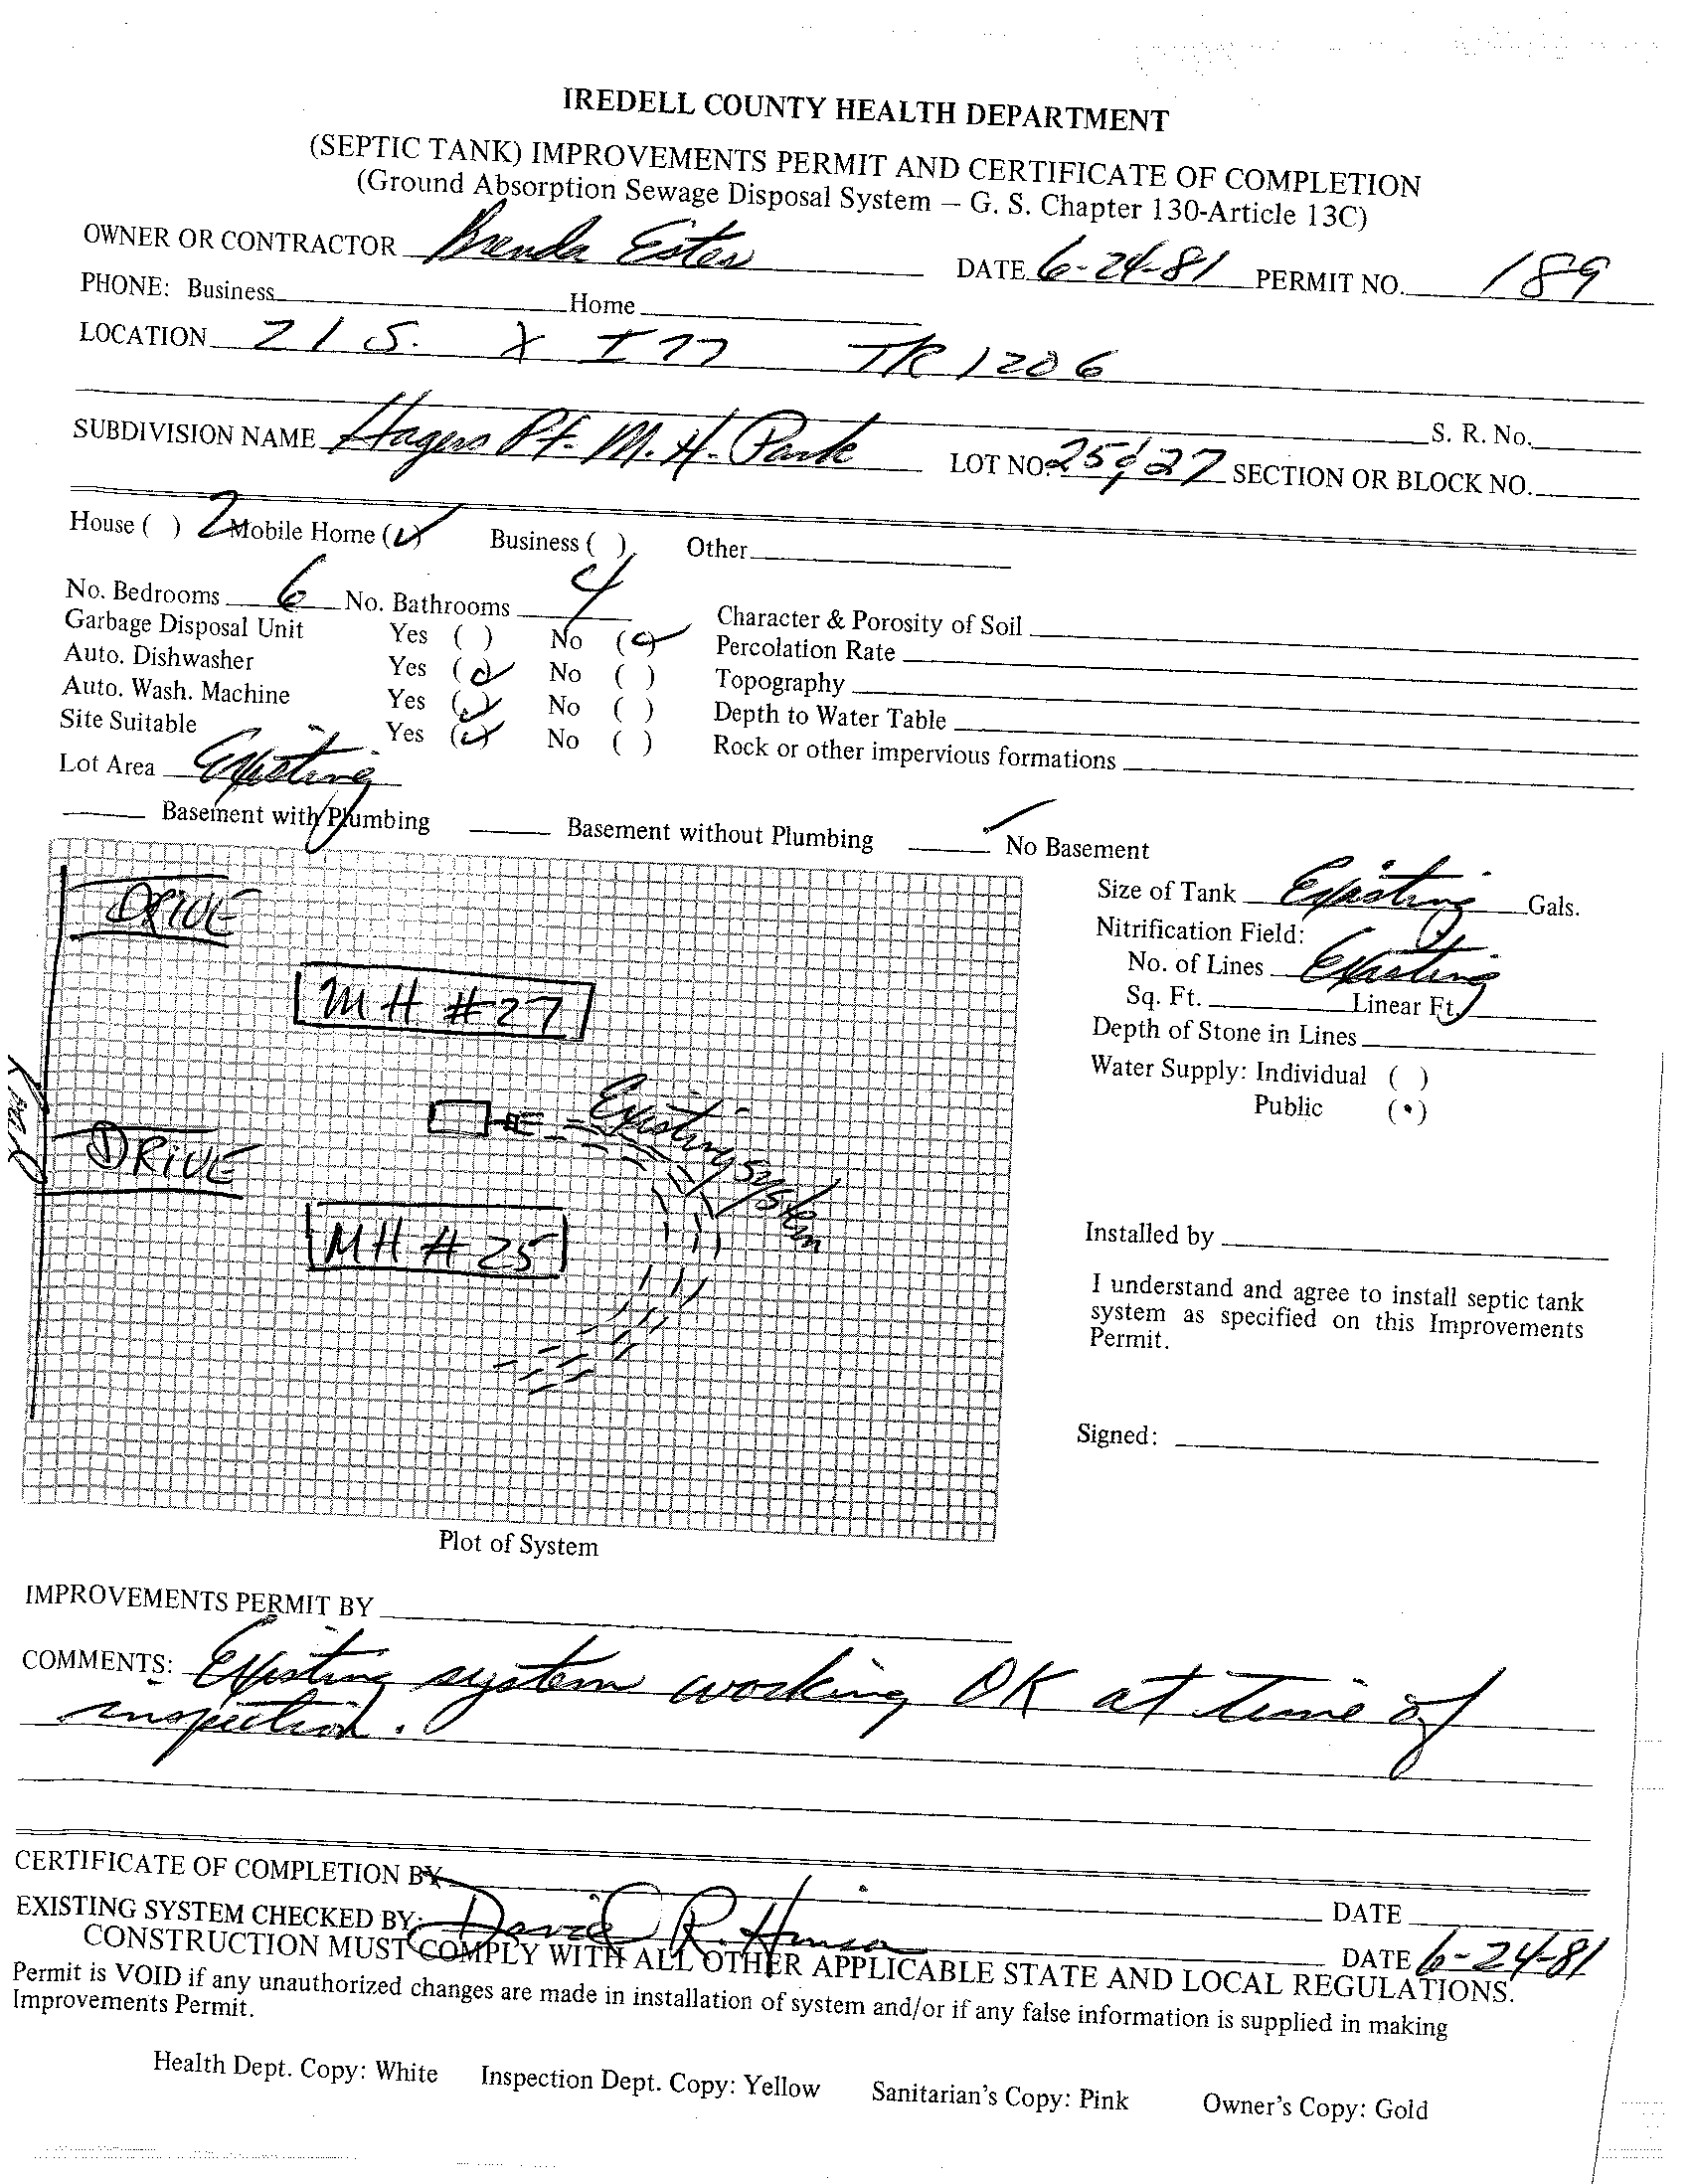 IREDELL COUNTY HEALTH DEPARTMENT
(SEPTIC TANK) IMPROVEMENTS PERMIT AND CERTIFICATE OF COMPLETION
(Ground Absorption Sewage Disposal System – G. S. Chapter 130-Article 13C)
OWNER OR CONTRACTOR Brenda Estes DATE 6-24-81 PERMIT NO. 189
PHONE: Business Home
LOCATION 21 S. X I 77 TR 1206
S. R. No.
SUBDIVISION NAME Hagers Pt. M. H. Park LOT NO. 25 & 27 SECTION OR BLOCK NO.
House ( ) 2 Mobile Home (✓) Business ( ) Other
No. Bedrooms 6 No. Bathrooms 4 Character & Porosity of Soil
Garbage Disposal Unit Yes ( ) No (✓) Percolation Rate
Auto. Dishwasher Yes (✓) No ( ) Topography
Auto. Wash. Machine Yes (✓) No ( ) Depth to Water Table
Site Suitable Yes (✓) No ( ) Rock or other impervious formations
Lot Area Existing
Basement with Plumbing Basement without Plumbing ✓ No Basement
DRIVE
MH #27
Existing system
Road
DRIVE
MH # 25
Plot of System
Size of Tank Existing Gals.
Nitrification Field:
No. of Lines Existing
Sq. Ft. Linear Ft.
Depth of Stone in Lines
Water Supply: Individual ( )
Public (•)
Installed by
I understand and agree to install septic tank
system as specified on this Improvements
Permit.
Signed:
IMPROVEMENTS PERMIT BY
COMMENTS: Existing system working OK at time of
inspection.
CERTIFICATE OF COMPLETION BY DATE
EXISTING SYSTEM CHECKED BY: David R. DATE 6-24-81
CONSTRUCTION MUST COMPLY WITH ALL OTHER APPLICABLE STATE AND LOCAL REGULATIONS.
Permit is VOID if any unauthorized changes are made in installation of system and/or if any false information is supplied in making
Improvements Permit.
Health Dept. Copy: White Inspection Dept. Copy: Yellow Sanitarian's Copy: Pink Owner's Copy: Gold